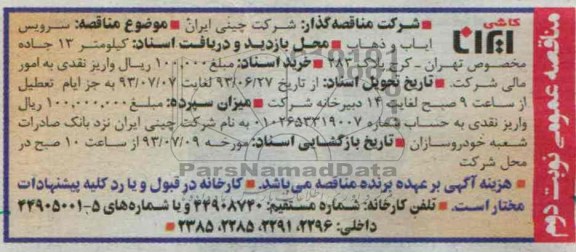 مناقصه عمومی نوبت دوم
کاشی ایرانا
شرکت مناقصه‌گذار: شرکت چینی ایران ■ موضوع مناقصه: سرویس
ایاب و ذهاب ■ محل بازدید و دریافت اسناد: کیلومتر ۱۳ جاده
مخصوص تهران - کرج پلاک ۲۸۳ ■ خرید اسناد: مبلغ ۱۰۰,۰۰۰ ریال واریز نقدی به امور
مالی شرکت. ■ تاریخ تحویل اسناد: از تاریخ ۹۳/۰۶/۲۷ لغایت ۹۳/۰۷/۰۷ به جز ایام تعطیل
از ساعت ۹ صبح لغایت ۱۴ دبیرخانه شرکت ■ میزان سپرده: مبلغ ۱۰۰,۰۰۰,۰۰۰ ریال
واریز نقدی به حساب شماره ۰۱۰۲۶۵۳۳۱۹۰۰۷ به نام شرکت چینی ایران نزد بانک صادرات
شعبه خودروسازان ■ تاریخ بازگشایی اسناد: مورخه ۹۳/۰۷/۰۹ از ساعت ۱۰ صبح در
محل شرکت
■ هزینه آگهی بر عهده برنده مناقصه می‌باشد. ■ کارخانه در قبول و یا رد کلیه پیشنهادات
مختار است. ■ تلفن کارخانه: شماره مستقیم: ۴۴۹۰۸۷۴۰ و یا شماره‌های ۵-۴۴۹۰۵۰۰۱
داخلی: ۲۲۹۶، ۲۲۹۱، ۲۲۸۵، ۲۳۸۵ ■
ParsNamadData